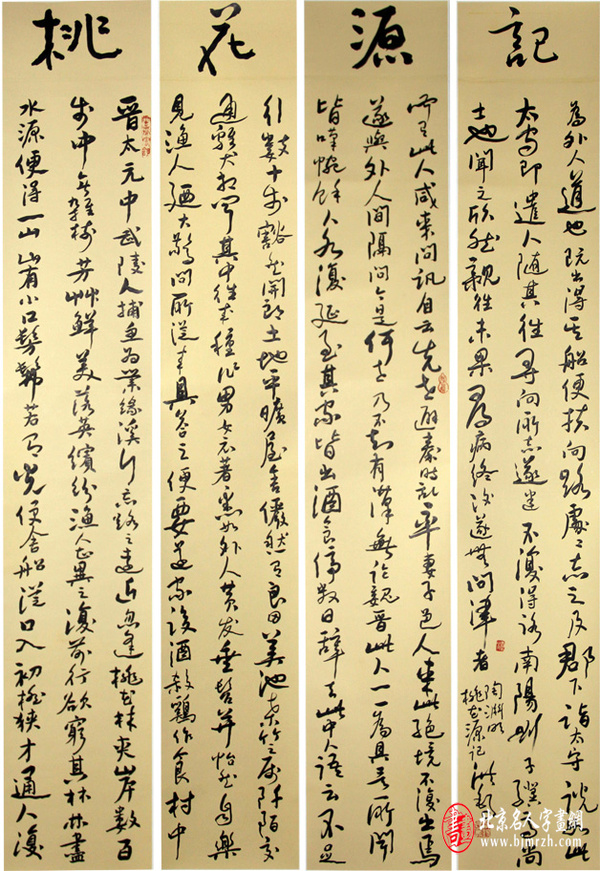 桃
晋太元中武陵人捕魚为業缘溪行忘路之遠近忽逢桃花林夾岸数百
步中無雜树芳艸鮮美落英缤纷渔人甚異之復前行欲窮其林林盡
水源便得一山山有小口髣髴若有光便舍船從口入初极狭才通人復
花
行数十步豁然開朗土地平曠屋舍儼然有良田美池桑竹之属阡陌交
通雞犬相聞其中往来種作男女衣著悉如外人黄发垂髫并怡然自樂
見渔人廼大驚問所從来具答之便要還家設酒殺鷄作食村中
源
聞有此人咸来問訊自云先世避秦時乱率妻子邑人来此絶境不復出焉
遂與外人間隔問今是何世乃不知有漢無論魏晋此人一一為具言所聞
皆嘆惋餘人各復延至其家皆出酒食停数日辭去此中人語云不足
記
為外人道也既出得其船便扶向路處々志之及郡下詣太守説如此
太守即遣人隨其往尋向所志遂迷不復得路南陽劉子驥高尚
士也聞之欣然親往未果尋病終後遂無問津者
陶淵明
桃花源記
北京名人字畫網
www.bjmrzh.com